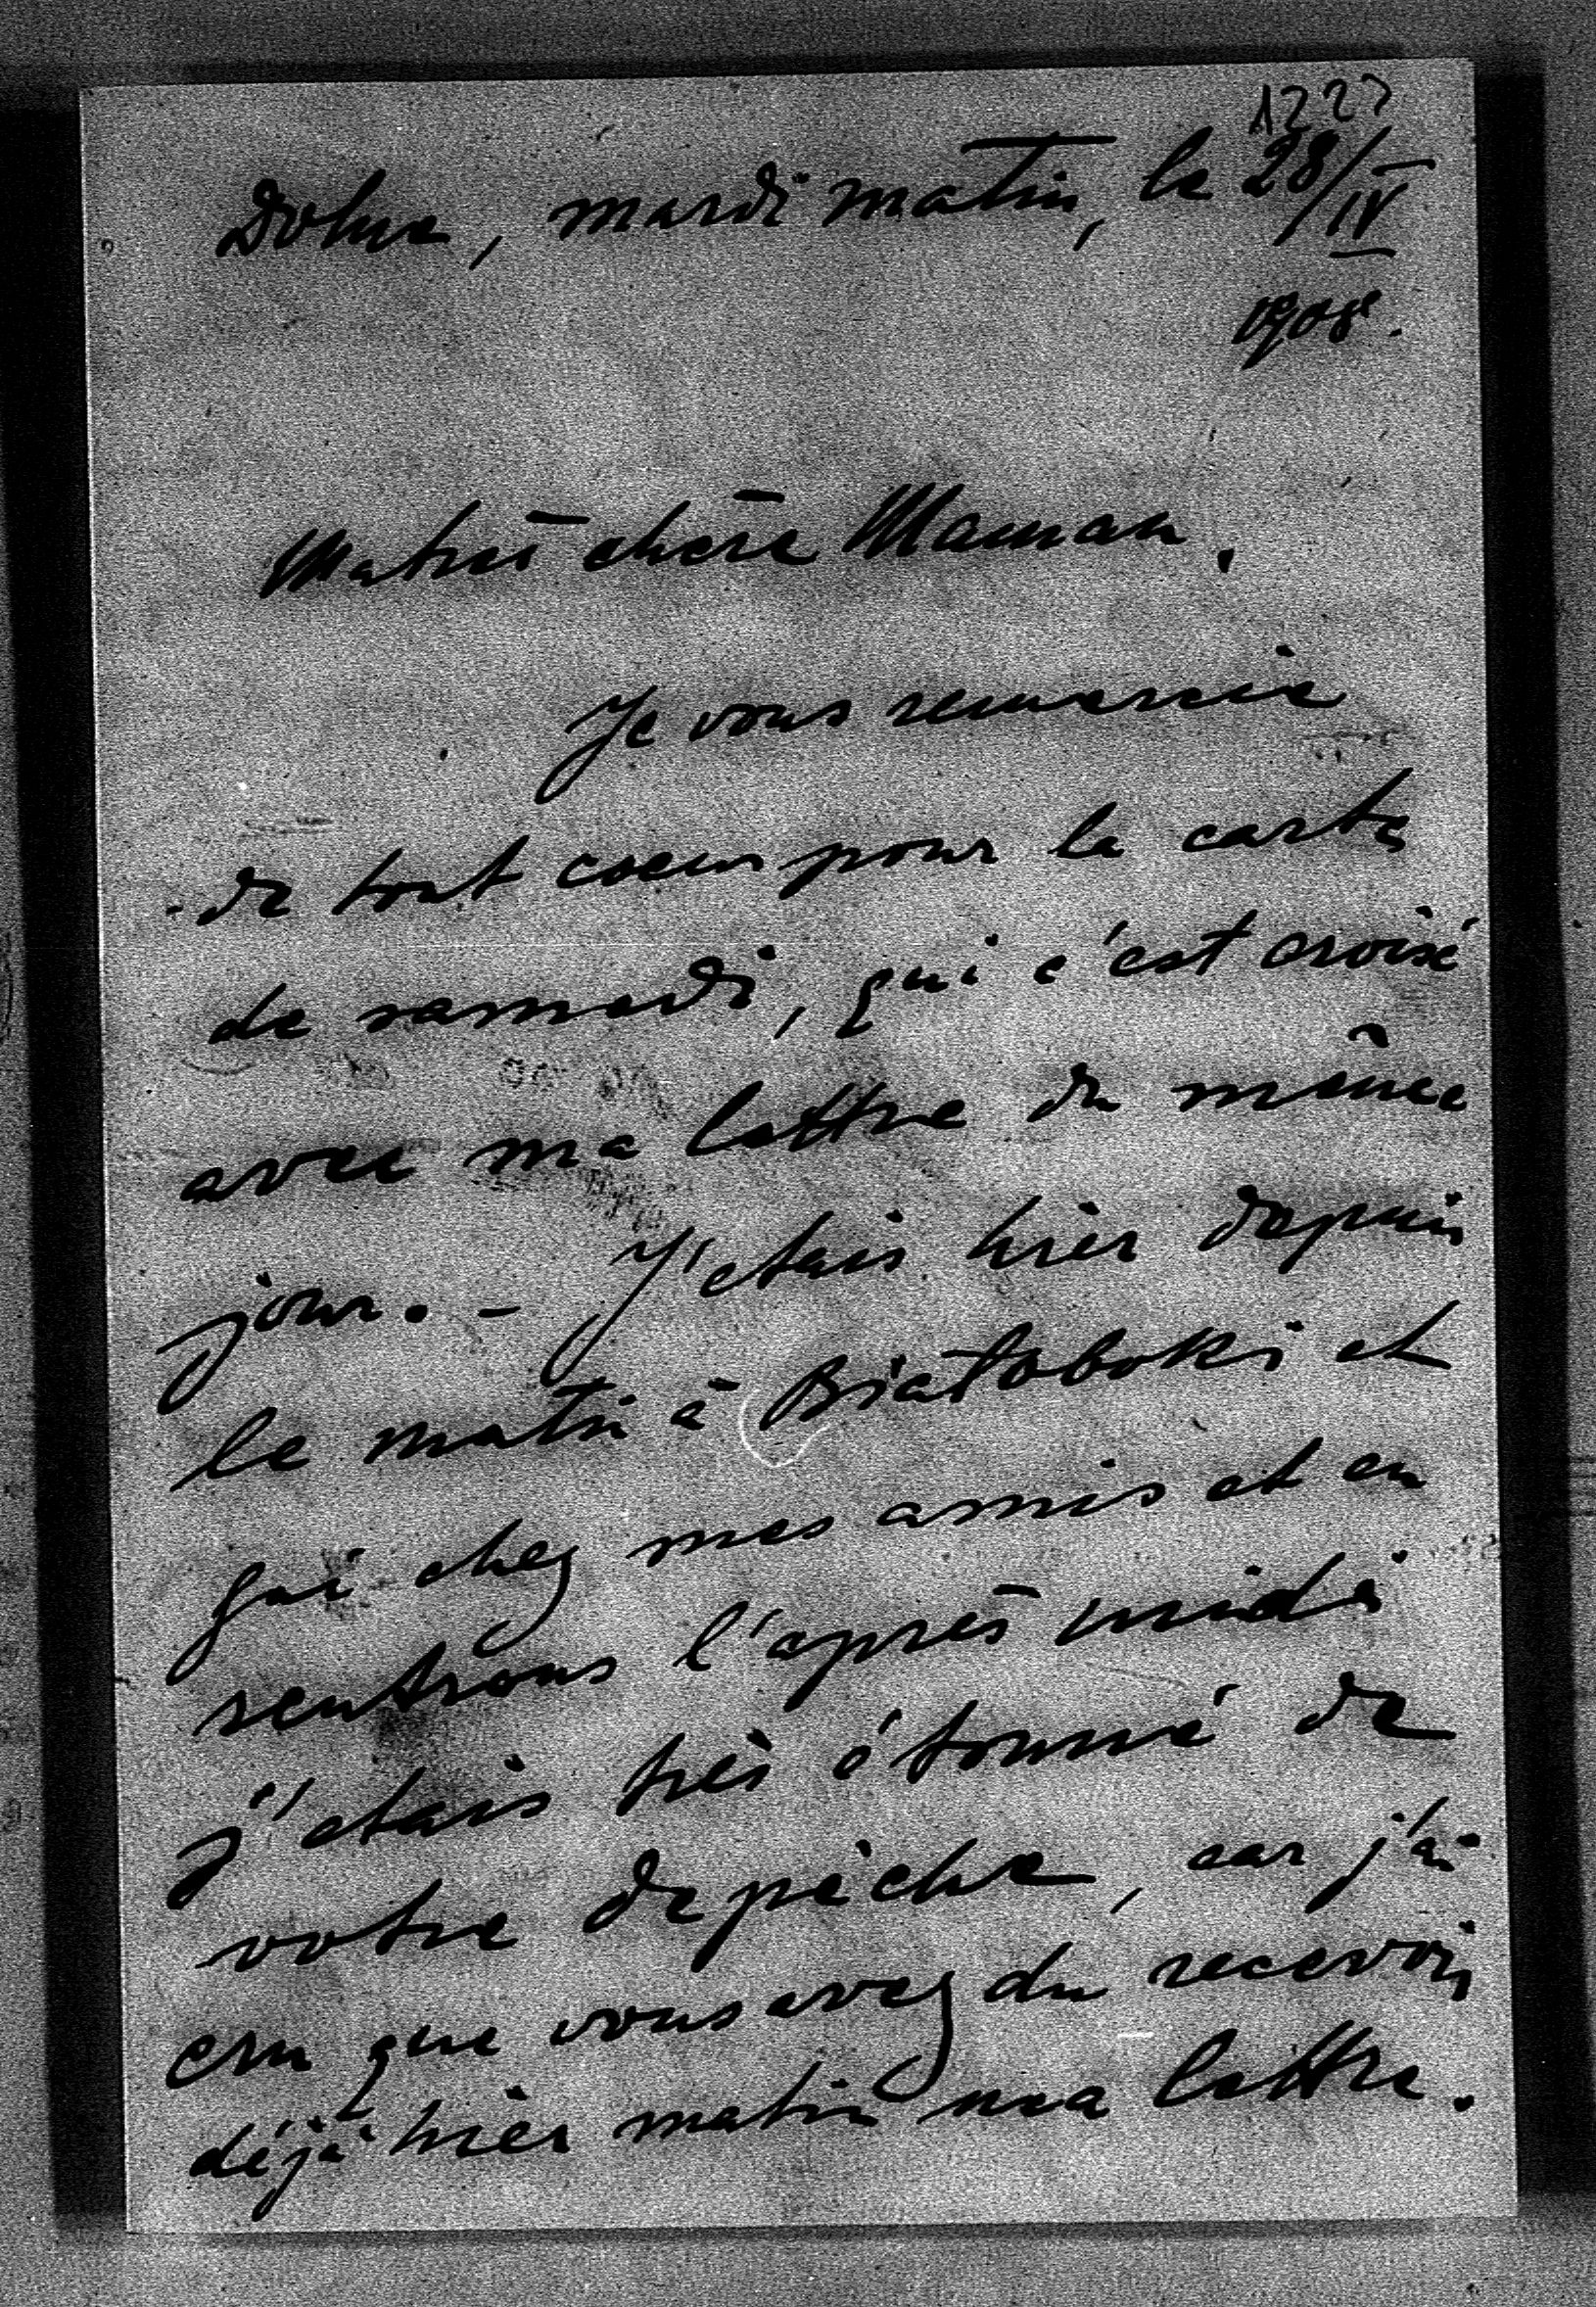 1227
Dolne, mardi matin, le 28/IV
1908.
Ma très chère Maman.
Je vous remercie
de tout coeur pour la carte
de samedi, qui c'est croisé
avec ma lettre du même
jour. - J'étais hièr depuis
le matin à Białoboki et
gai chez mes amis et en
rentrons l'après midi
j'étais très étonné de
votre depèche, car j'ai
cru que vous avez du recevoir
déjà hièr matin ma lettre.